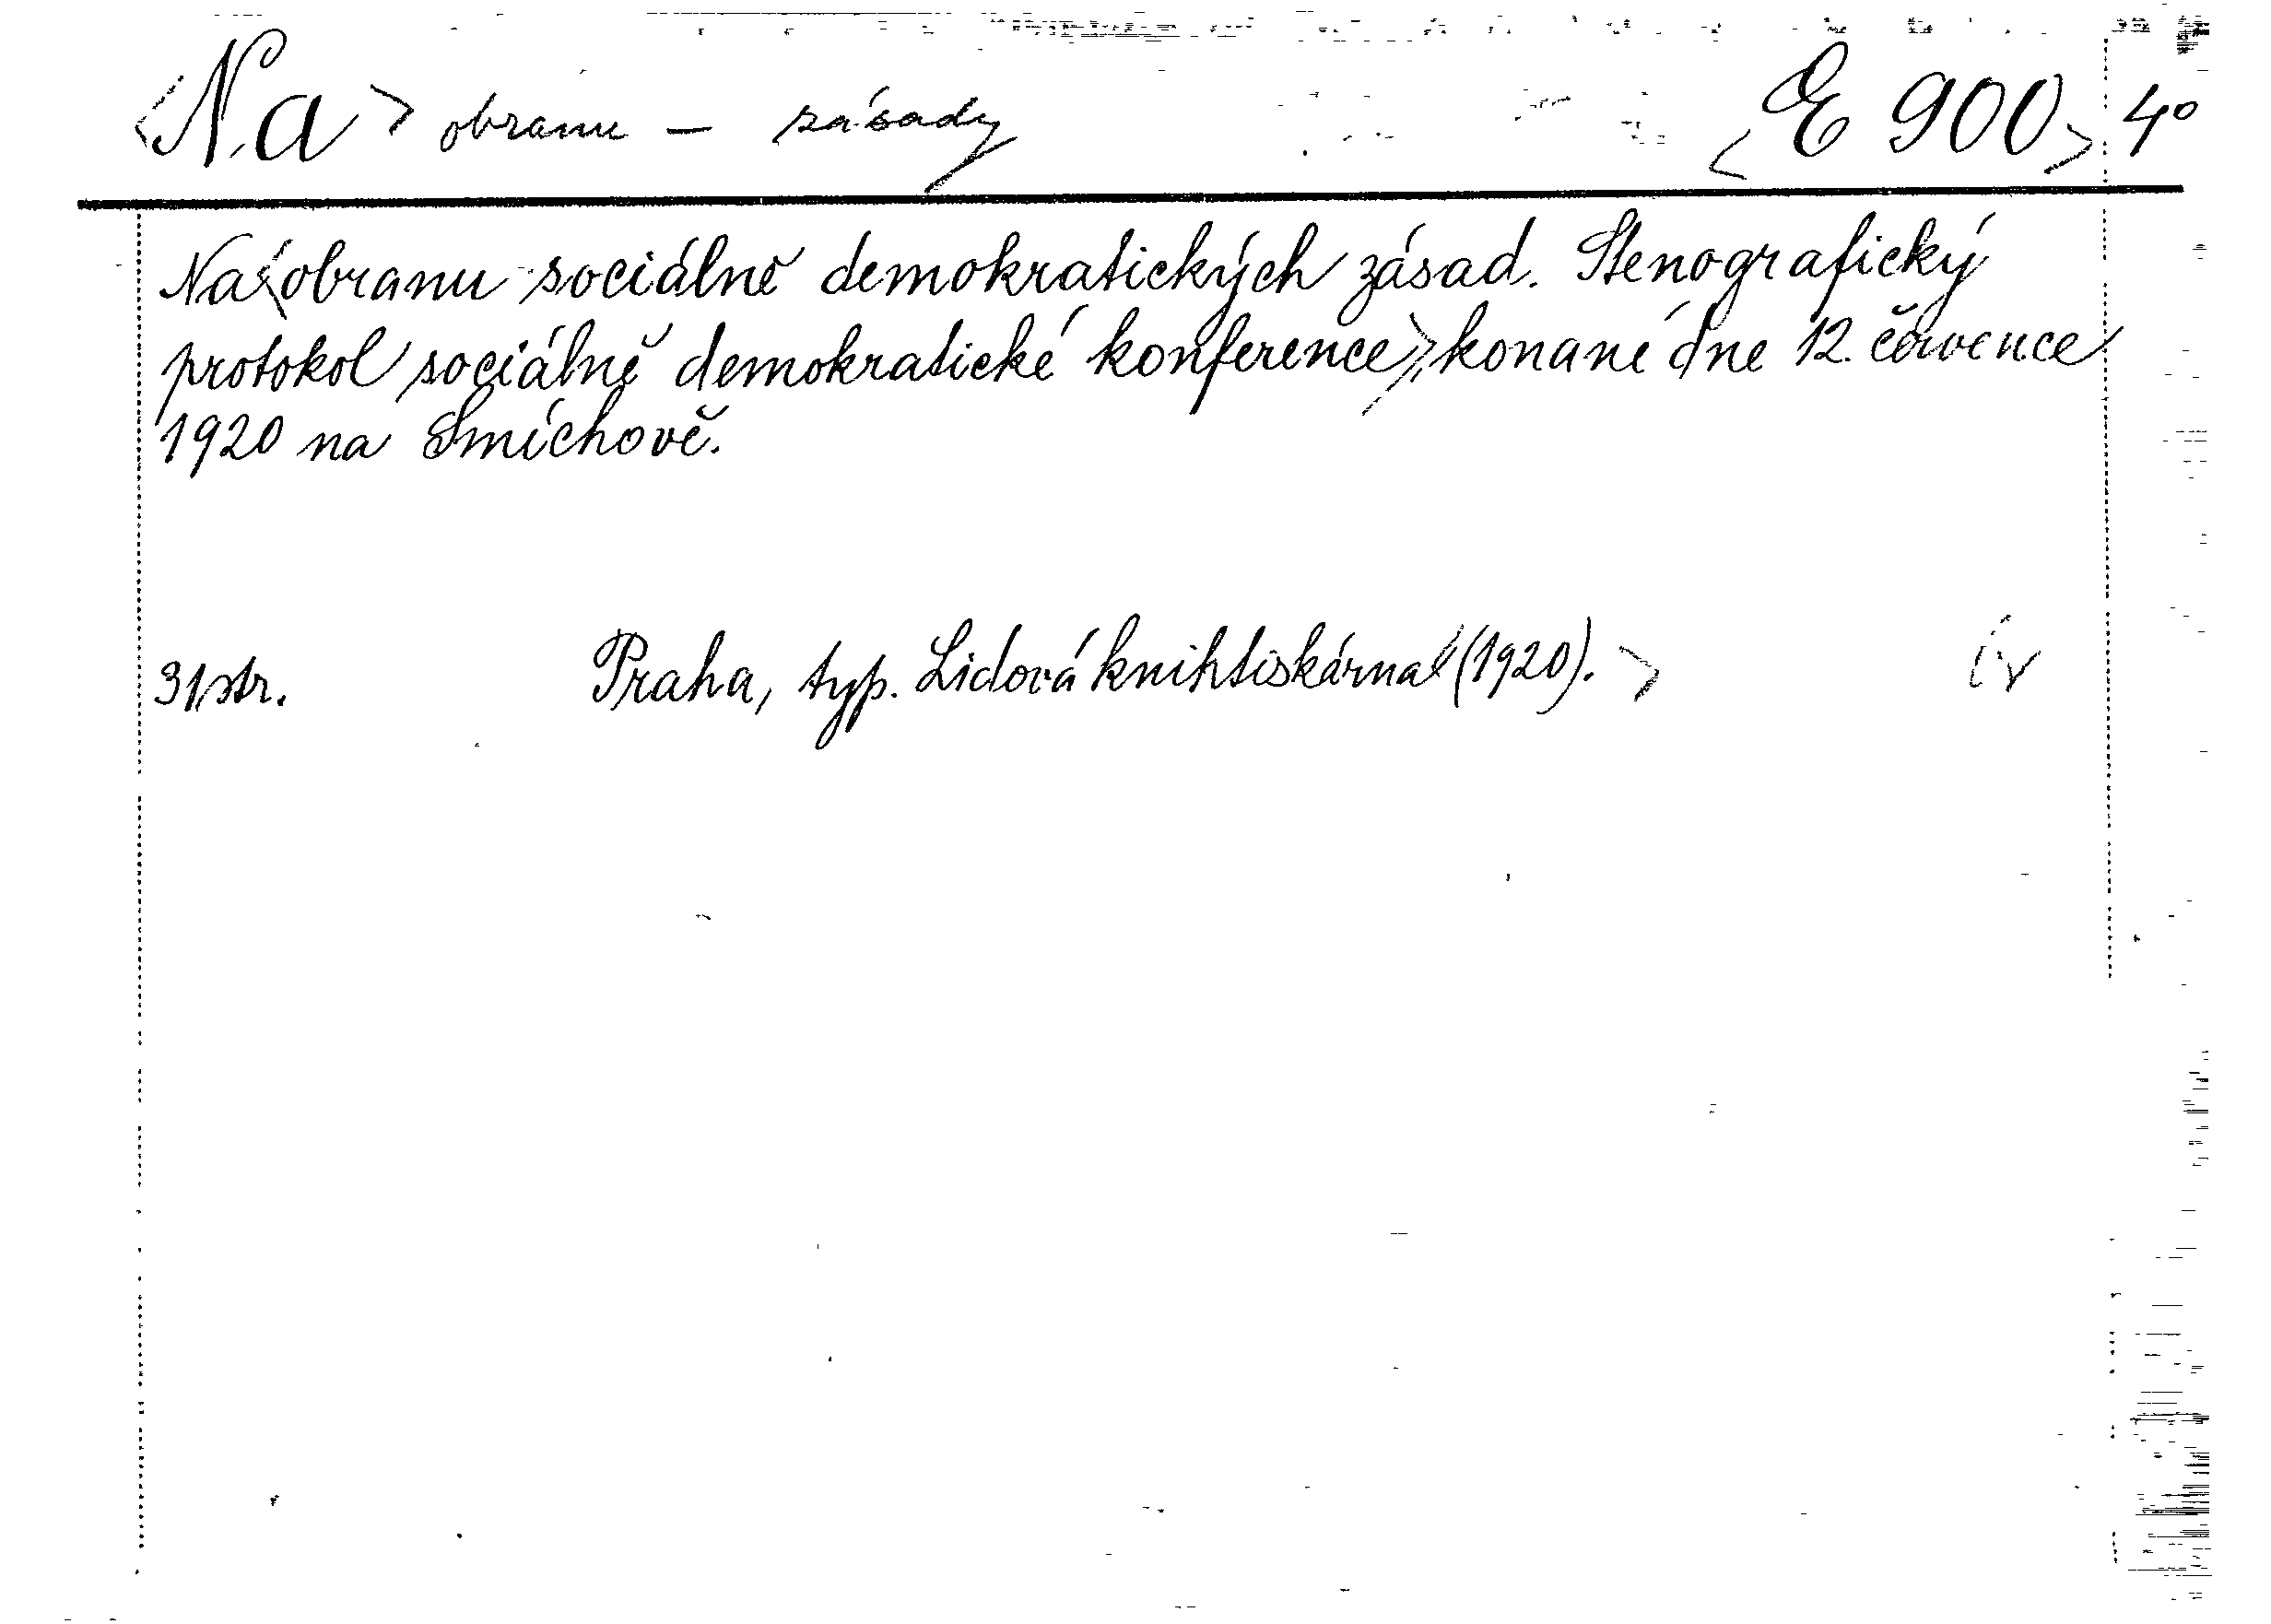 <Na> obranu – zásady <E 900> 4°
Na<obranu sociálně demokratických zásad. Stenografický
protokol sociálně demokratické konference> konané dne 12. července
1920 na Smíchově.
31 str. Praha, typ. Lidová knihtiskárna (1920). >